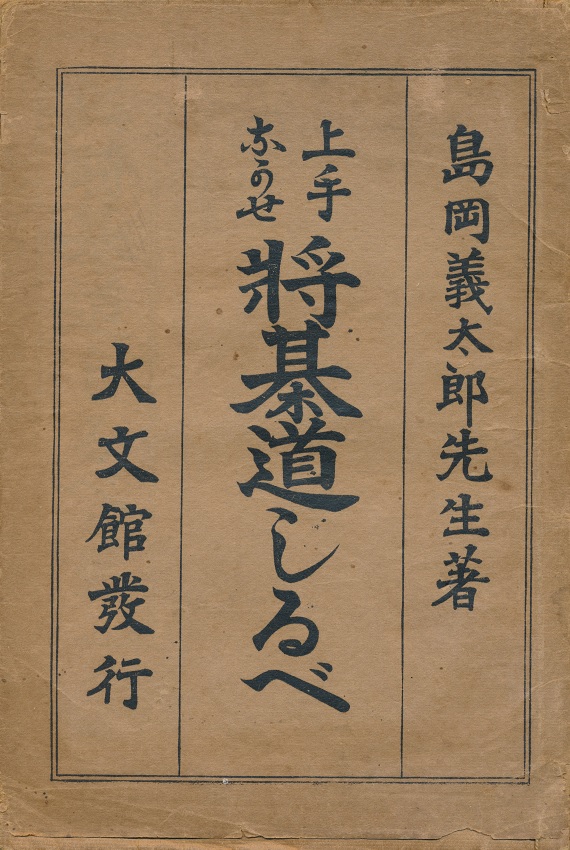 島岡義太郎先生著
上手
なかせ
將棊道しるべ
大文館發行